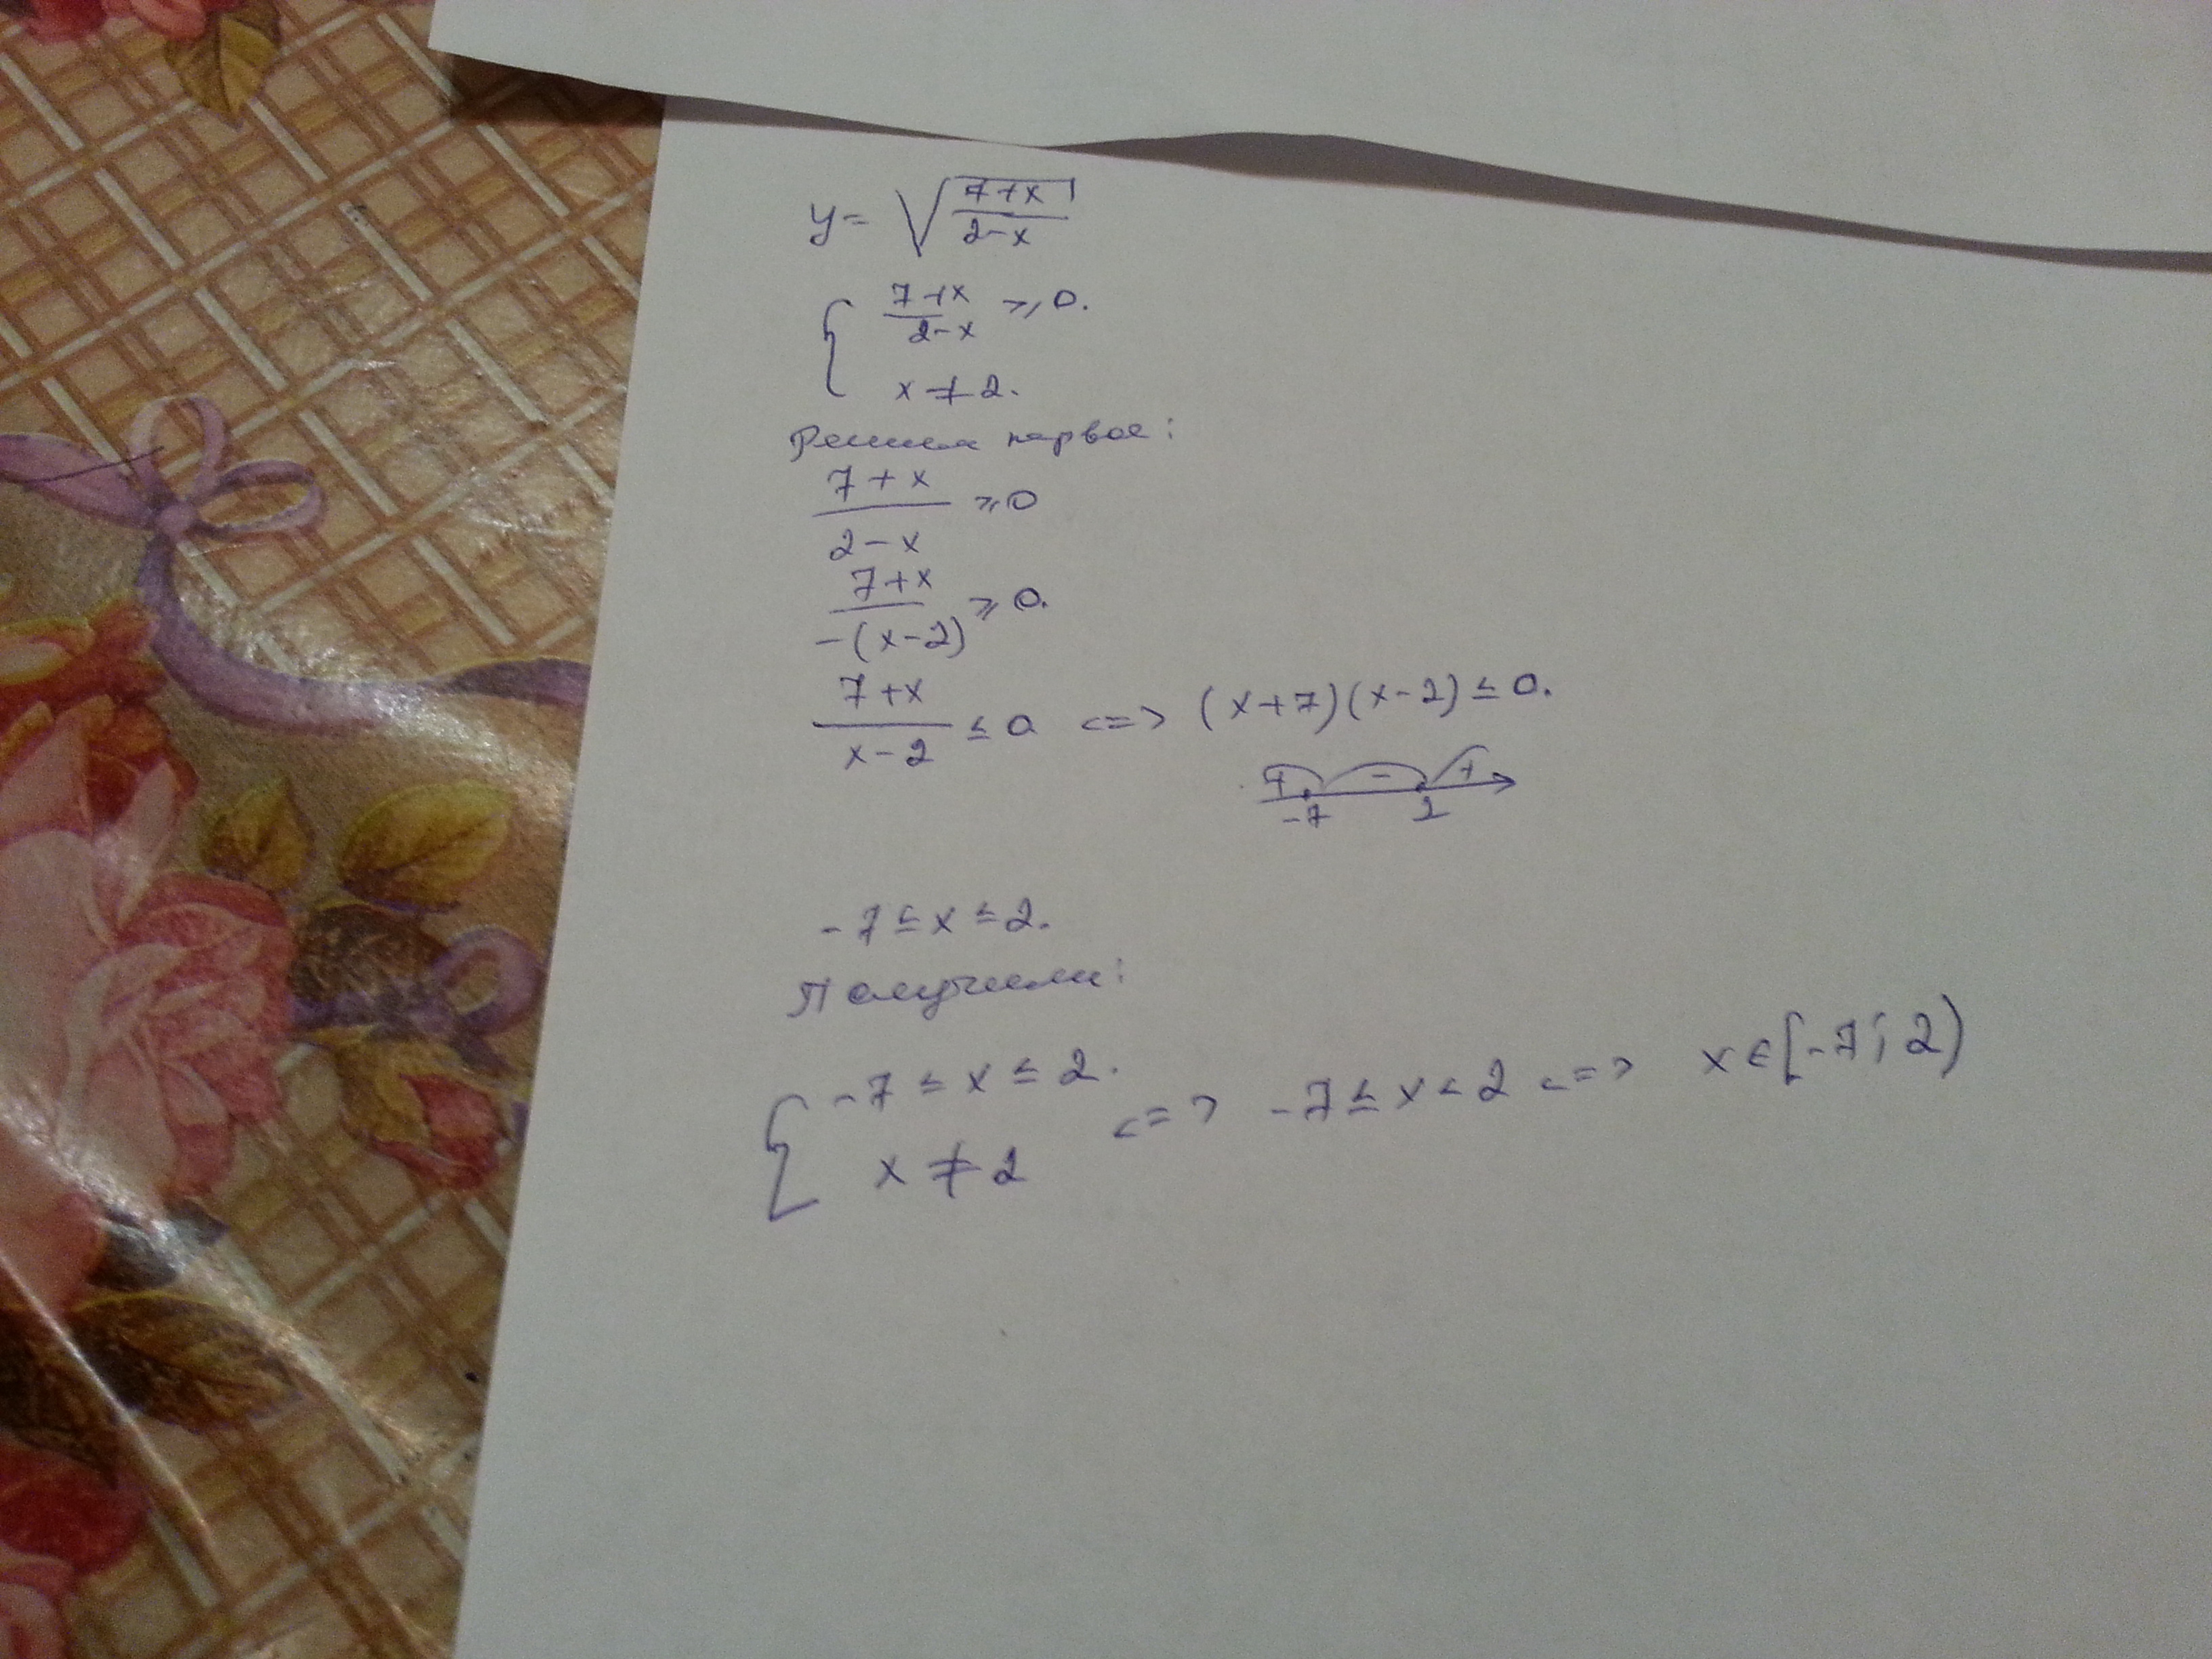 y = √((7+x)/(2-x))
{ (7+x)/(2-x) ≥ 0.
x ≠ 2.
Решим первое:
(7+x)/(2-x) ≥ 0
(7+x)/(-(x-2)) ≥ 0.
(7+x)/(x-2) ≤ 0 <=> (x+7)(x-2) ≤ 0.
+ - +
-7 2
-7 ≤ x ≤ 2.
Получили:
{ -7 ≤ x ≤ 2.
x ≠ 2 <=> -7 ≤ x < 2 <=> x ∈ [-7; 2)